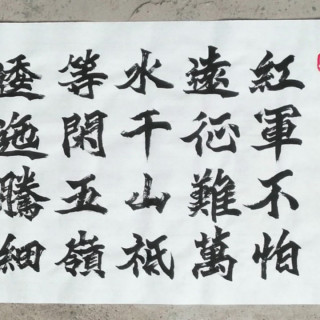 紅軍不怕
遠征難萬
水千山祗
等閑五嶺
逶迤騰細